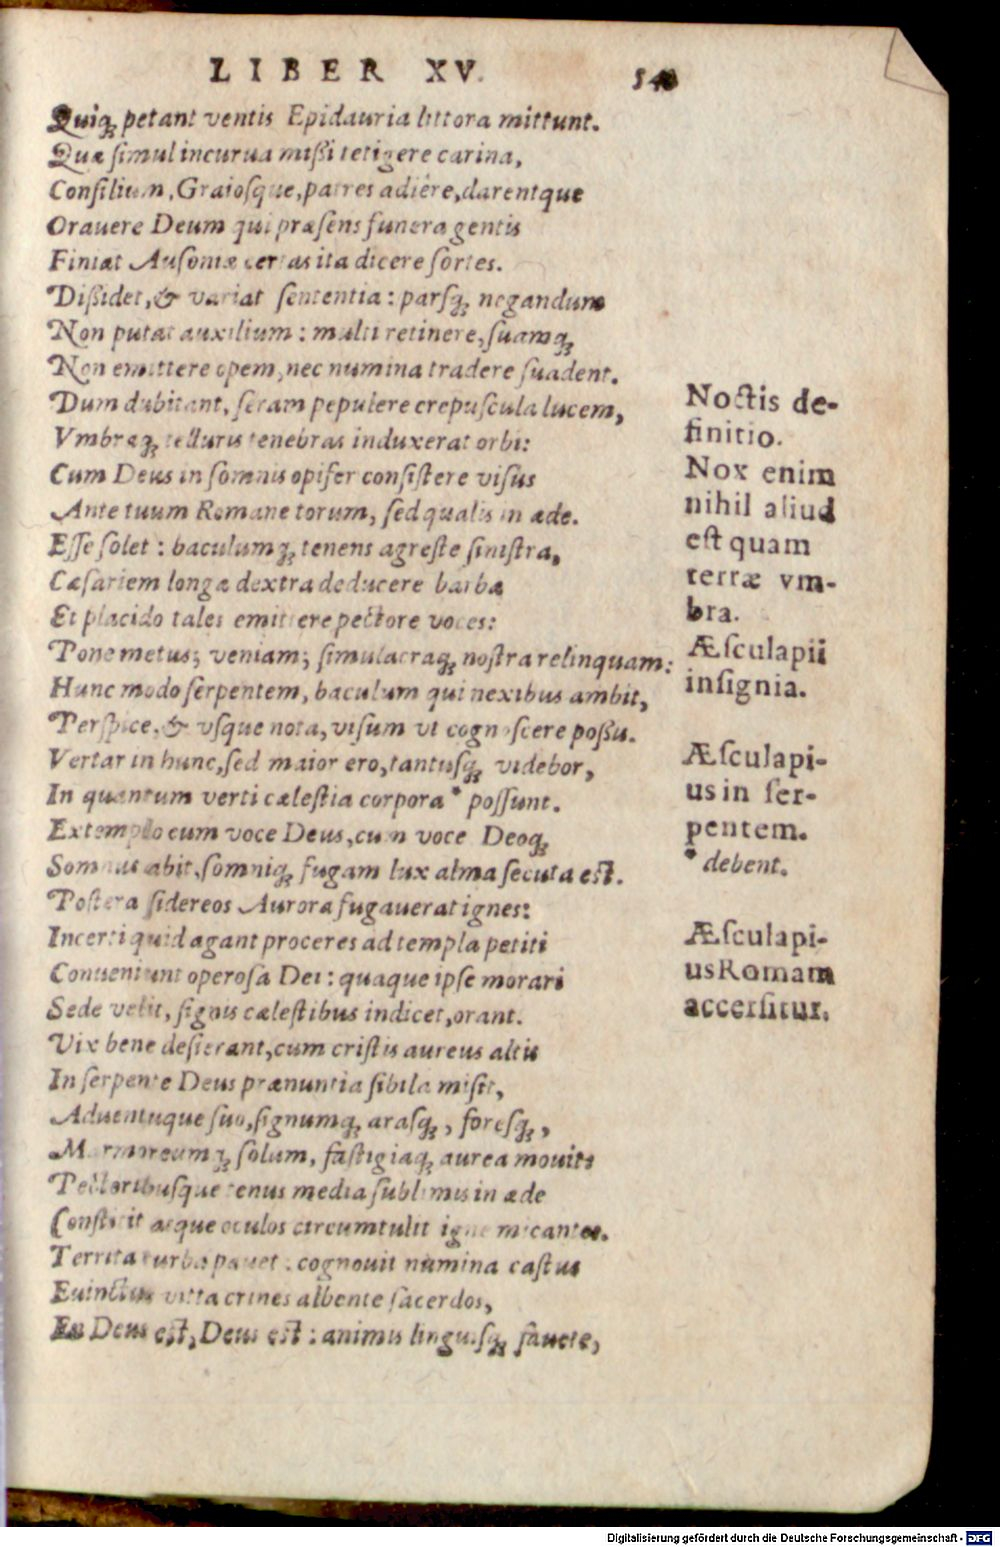 LIBER XV.
Quiq; petant ventis Epidauria littora mittunt.
Quæ simul incurua mißi tetigere carina,
Consilium, Graiosque, patres adiêre, darentque
Orauere Deum qui præsens funera gentis
Finiat Ausoniæ certas ita dicere sortes.
Dißidet, & variat sententia: parsq; negandum
Non putat auxilium: multi retinere, suamq;
Non emittere opem, nec numina tradere suadent.
Dum dubitant, seram pepulere crepuscula lucem,
Vmbraq; telluris tenebras induxerat orbi:
Cum Deus in somnis opifer consistere visus
Ante tuum Romane torum, sed qualis in æde.
Esse solet: baculumq; tenens agreste sinistra,
Cæsariem longæ dextra deducere barbæ
Et placido tales emittere pectore voces:
Pone metus; veniam; simulacraq; nostra relinquam:
Hunc modo serpentem, baculum qui nexibus ambit,
Perspice, & vsque nota, visum vt cognoscere poßis.
Vertar in hunc, sed maior ero, tantusq; videbor,
In quantum verti cælestia corpora* possunt.
Extemplo cum voce Deus, cum voce Deoq;
Somnus abit, somniq; fugam lux alma secuta est.
Postera sidereos Aurora fugauerat ignes:
Incerti quid agant proceres ad templa petiti
Conueniunt operosa Dei: quaque ipse morari
Sede velit, signis cælestibus indicet, orant.
Vix bene desierant, cum cristis aureus altis
In serpente Deus prænuntia sibila misit,
Aduentuque suo, signumq; arasq;, foresq;,
Marmoreumq; solum, fastigiaq; aurea mouit:
Pectoribusque tenus media sublimis in æde
Constitit atque oculos circumtulit igne micantes.
Territa turba pauet: cognouit numina castus
Euinctus vitta crines albente sacerdos,
En Deus est, Deus est: animis linguisq; fauete,
Noctis de-
finitio.
Nox enim
nihil aliud
est quam
terræ vm-
bra.
Æsculapii
insignia.
Æsculapi-
us in ser-
pentem.
* debent.
Æsculapi-
us Romam
accersitur.
Digitalisierung gefördert durch die Deutsche Forschungsgemeinschaft - DFG